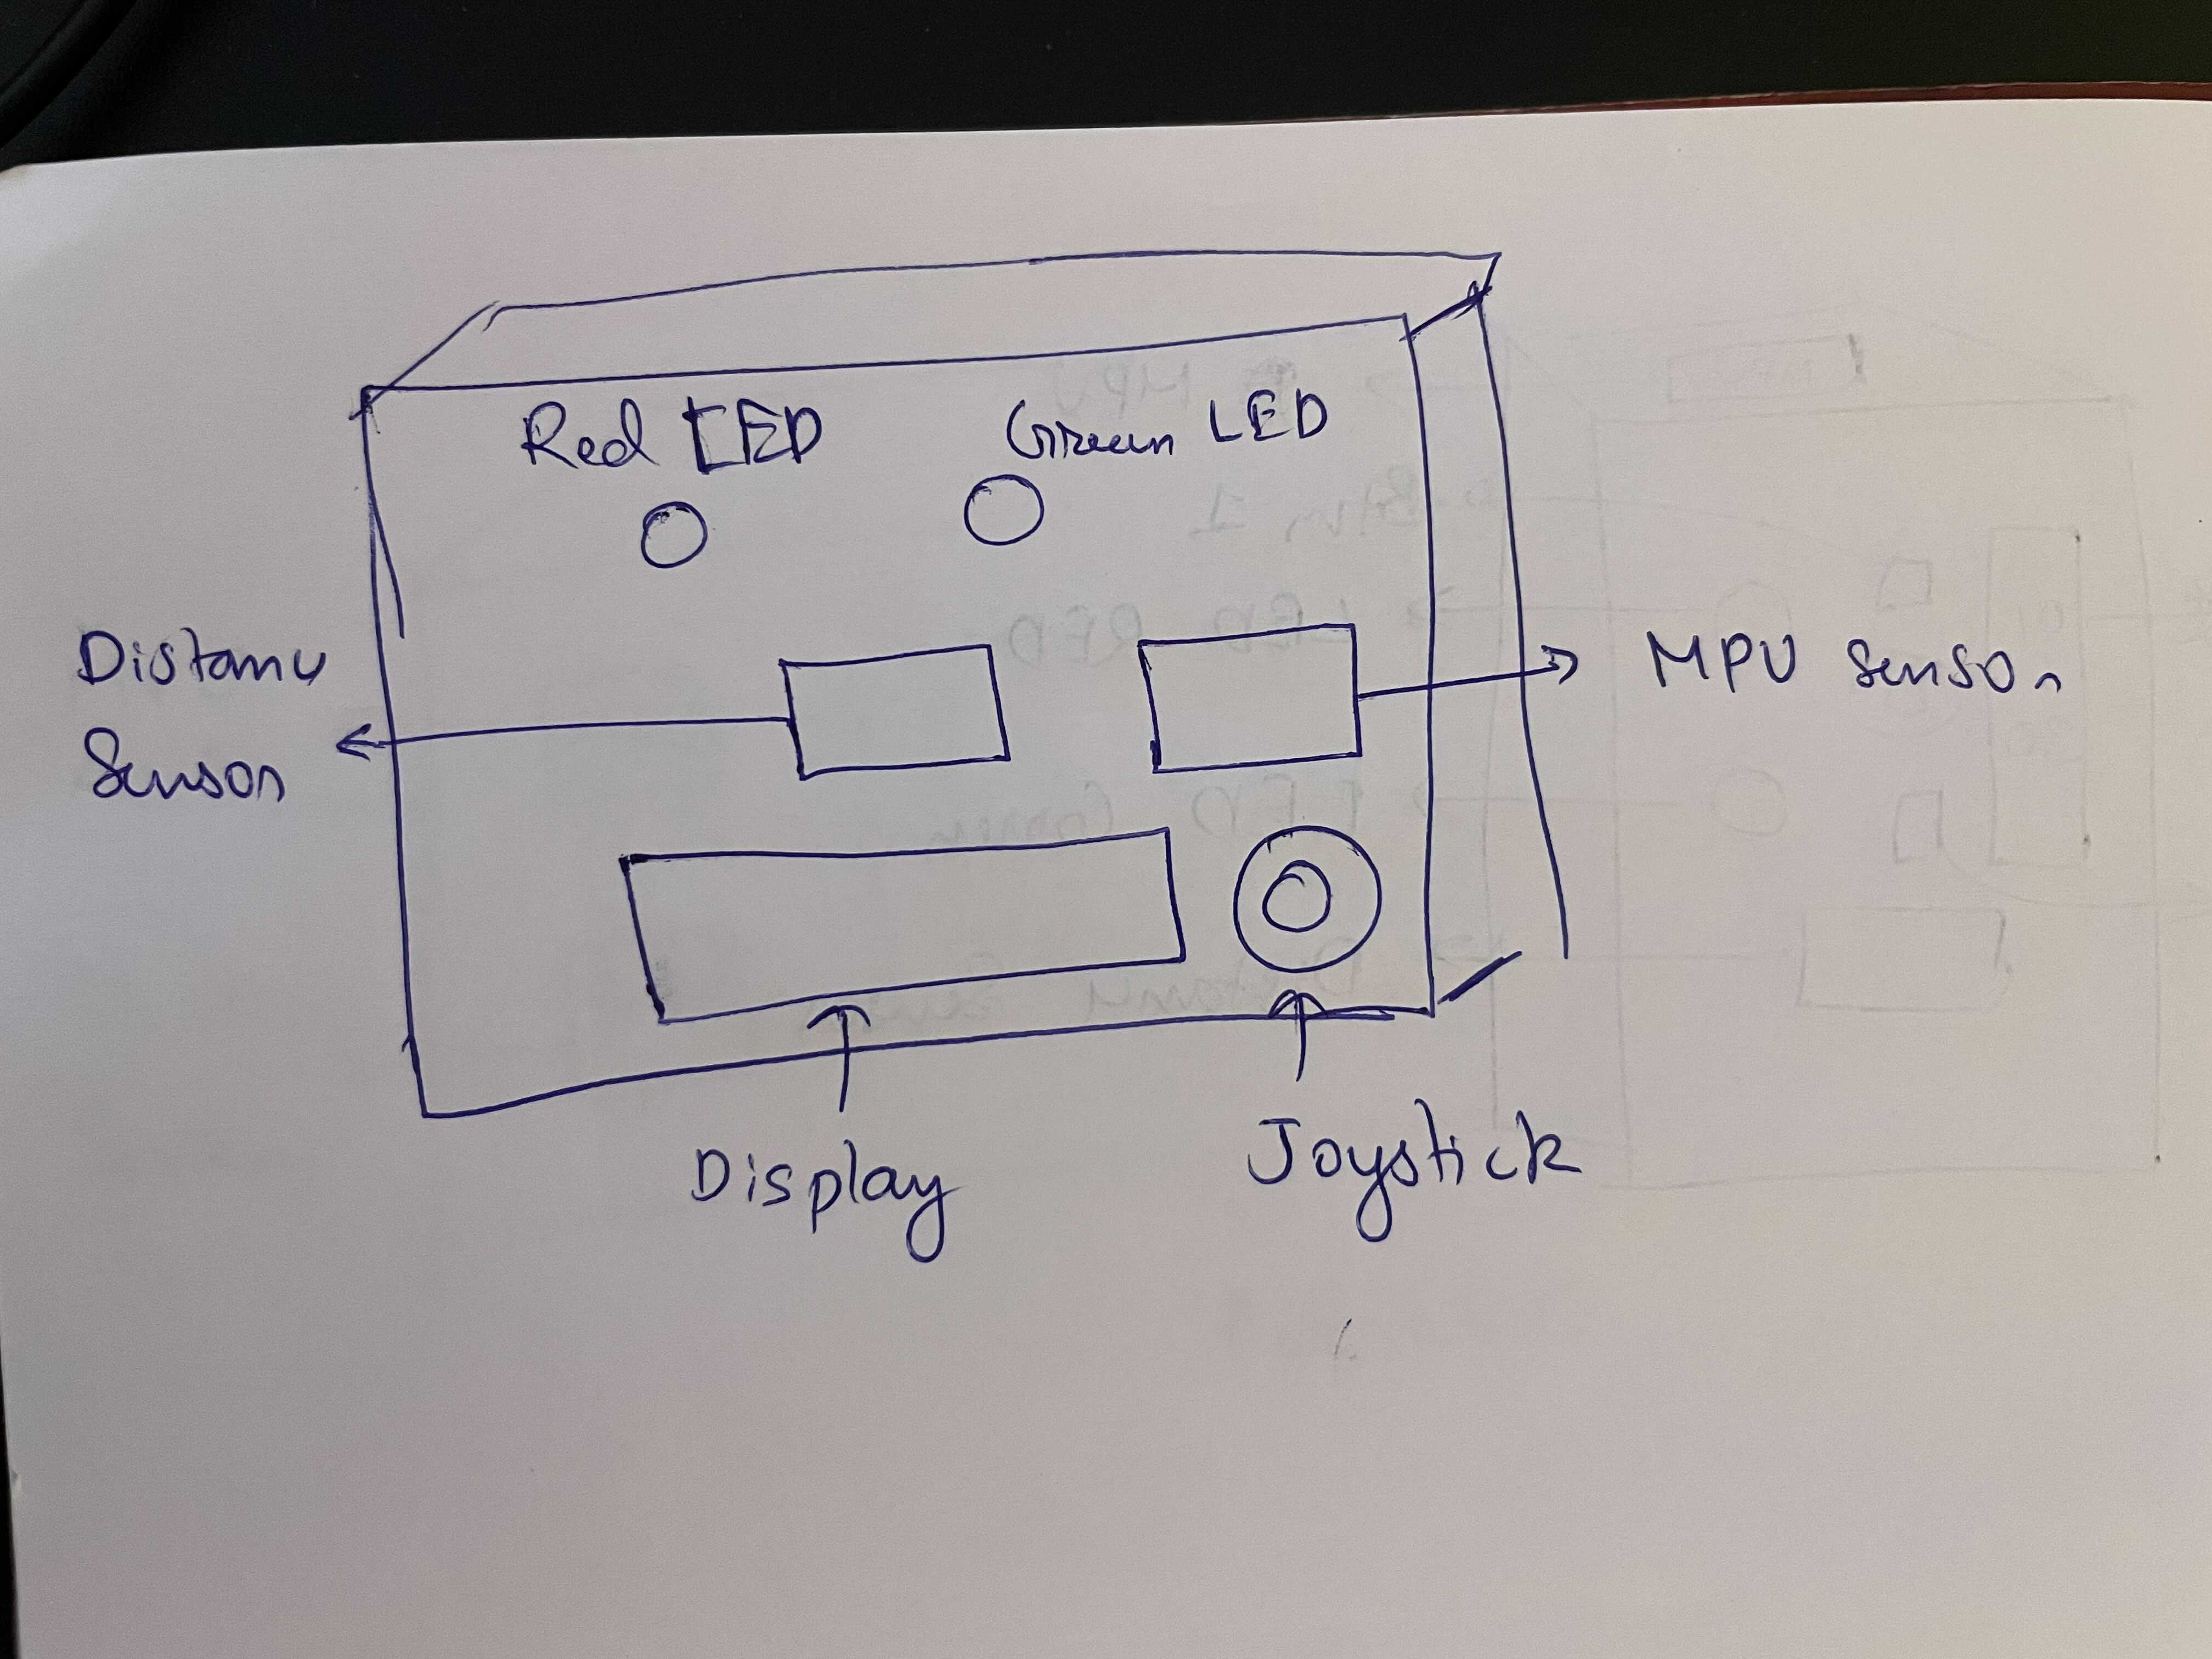 Red LED
Green LED
Distance
Sensor
MPU sensor
Display
Joystick